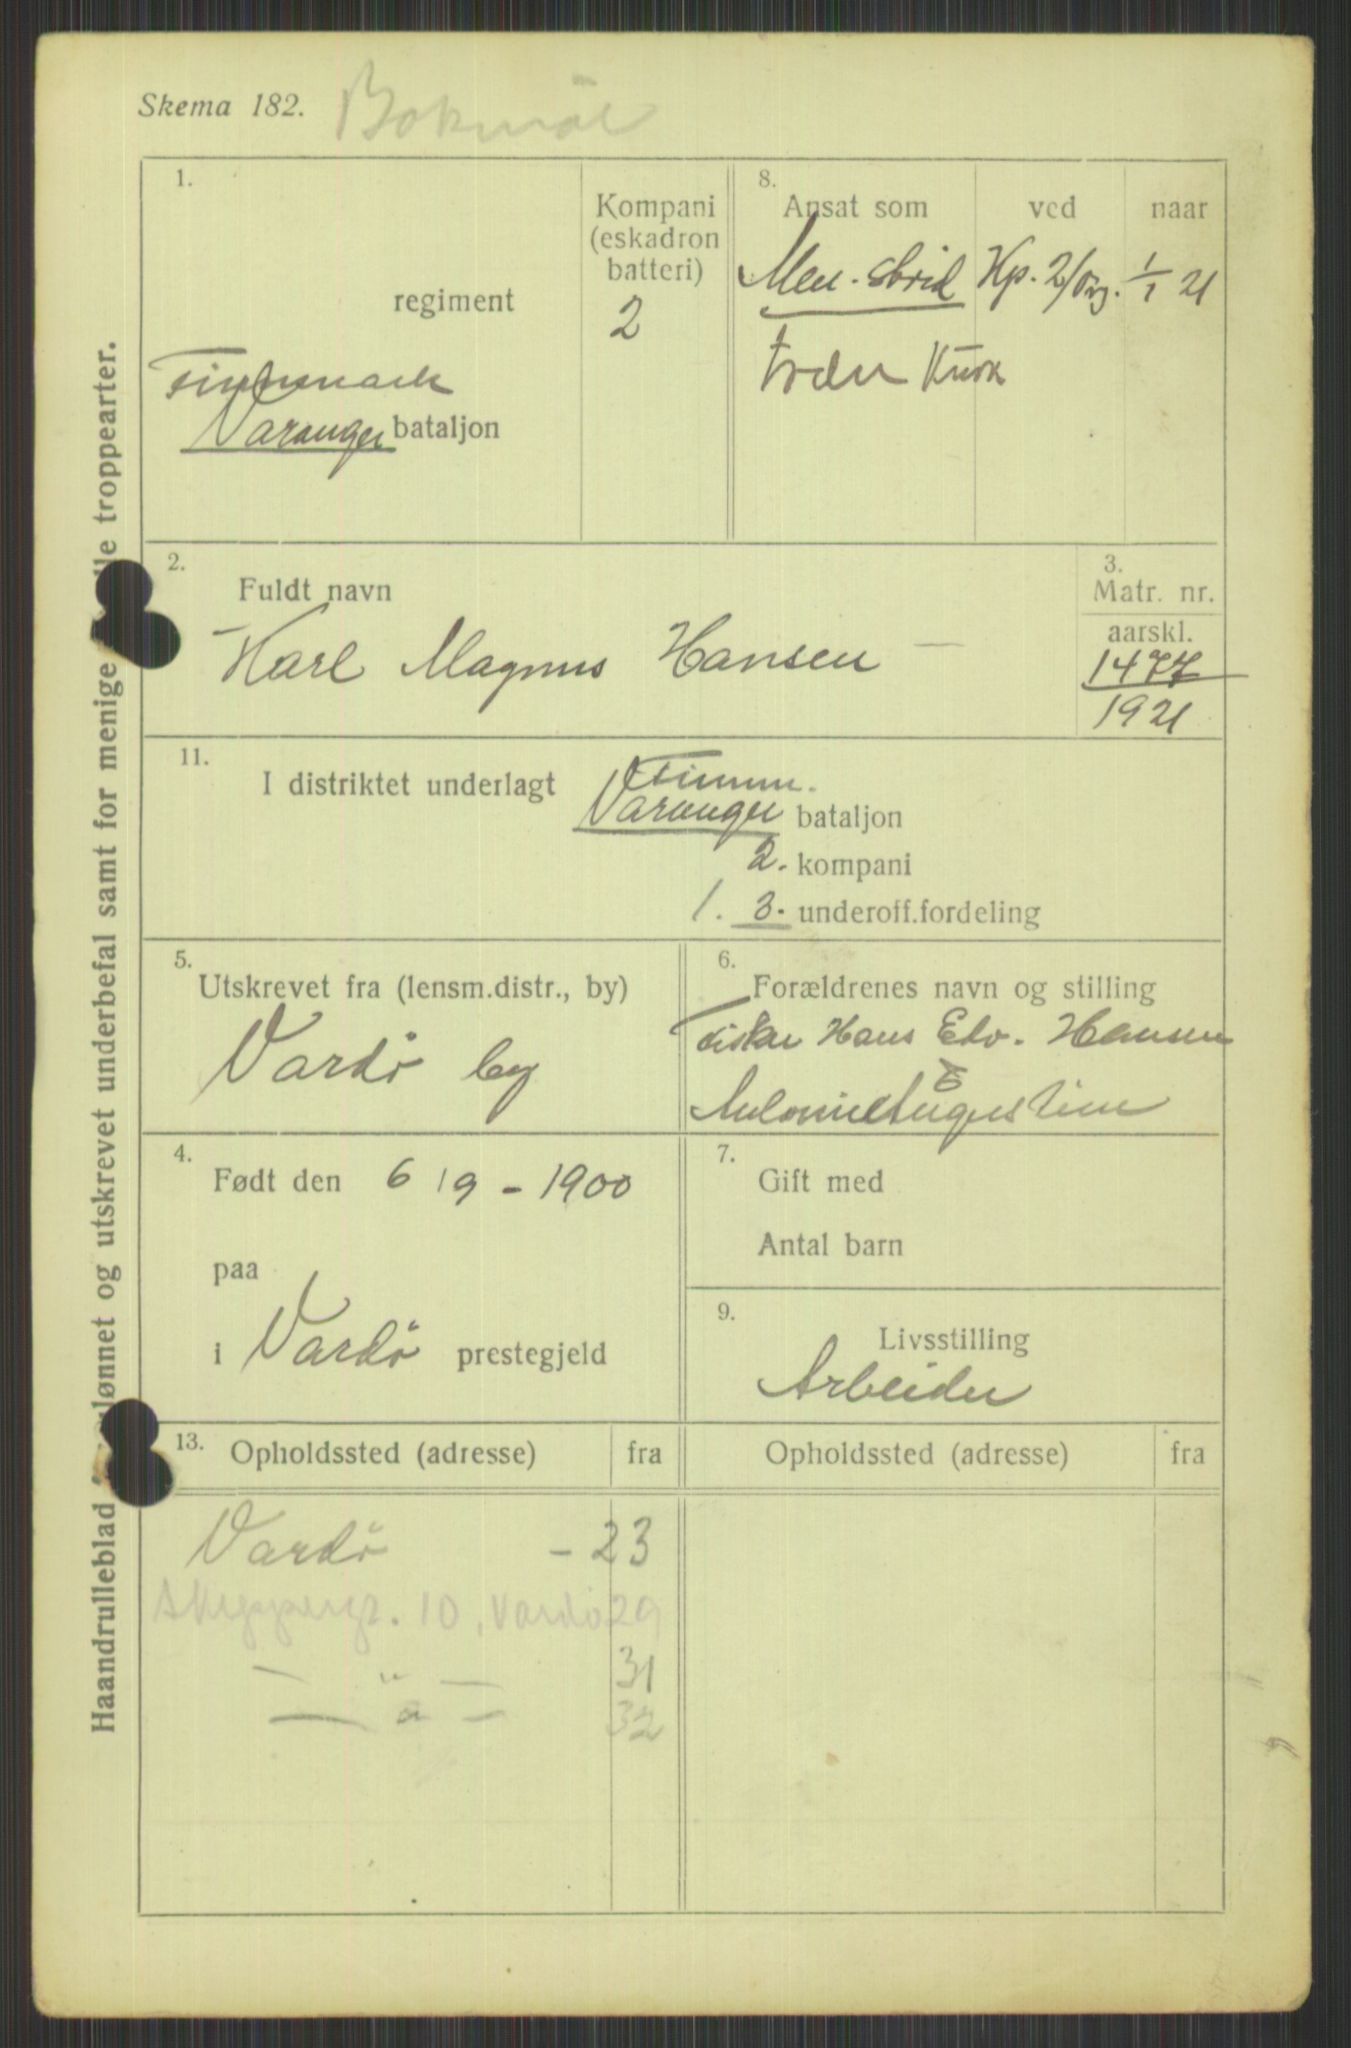 Skema 182. Bokmål
1.
regiment
Finnmark
Varanger bataljon
Kompani
(eskadron
batteri)
2
8.
Ansat som ved naar
Men. strid Kp. 2/Vrg. 1/1 21
2.
Fuldt navn
Karl Magnus Hansen
3.
Matr. nr.
aarskl.
1477
1921
11.
I distriktet underlagt
Finnm.
Varanger bataljon
2. kompani
1. 3. underoff.fordeling
5.
Utskrevet fra (lensm.distr., by)
Vardö by
6.
Forældrenes navn og stilling
Fisker Hans Edv. Hansen
Augustine
4.
Født den 6/9 - 1900
paa
i Vardö prestegjeld
7.
Gift med
Antal barn
9.
Livsstilling
Arbeider
13.
Opholdssted (adresse) fra
Opholdssted (adresse) fra
Vardö - 23
Skippergt. 10, Vardö 29
— " — 31
— " — 32
Haandrulleblad
lønnet og utskrevet underbefal samt for menige
troppearter.